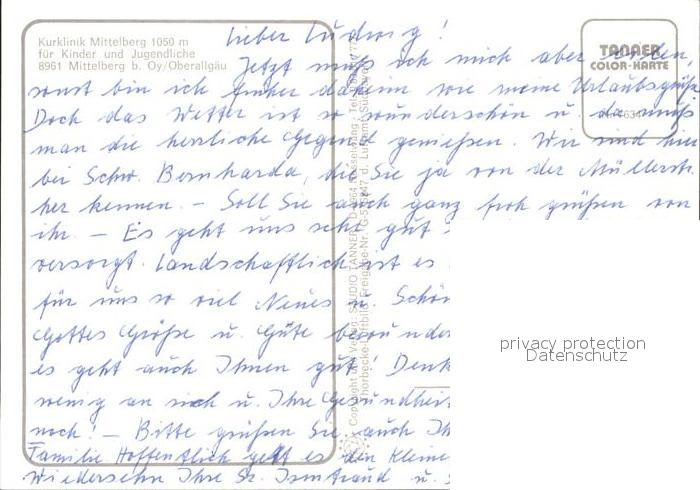 Kurklinik Mittelberg 1050 m
für Kinder und Jugendliche
8961 Mittelberg b. Oy/Oberallgäu
TANNER
COLOR-KARTE
Lieber Ludwig!
Jetzt muß ich mich aber
sonst bin ich früher daheim wie meine Urlaubsgrüße
Doch das Wetter ist so wunderschön u. da muß
man die herrliche Gegend genießen. Wir sind hier
bei Schw. Bernharda, die Sie ja von der Müllerstr.
her kennen. – Soll Sie auch ganz froh grüßen von
ihr. – Es geht uns sehr gut
versorgt. Landschaftlich ist es
für uns so viel Neues u. Schön
Gottes Größe u. Güte bewunder
es geht auch Ihnen gut! Denk
wenig an sich u. Ihre Gesundheit
noch! – Bitte grüßen Sie auch Ih
Familie Hoffentlich geht es den Kleine
Wiedersehn Ihre Sr. Irmtraud u. S
Copyright und Verlag: STUDIO TANNER, D-8964
privacy protection
Datenschutz